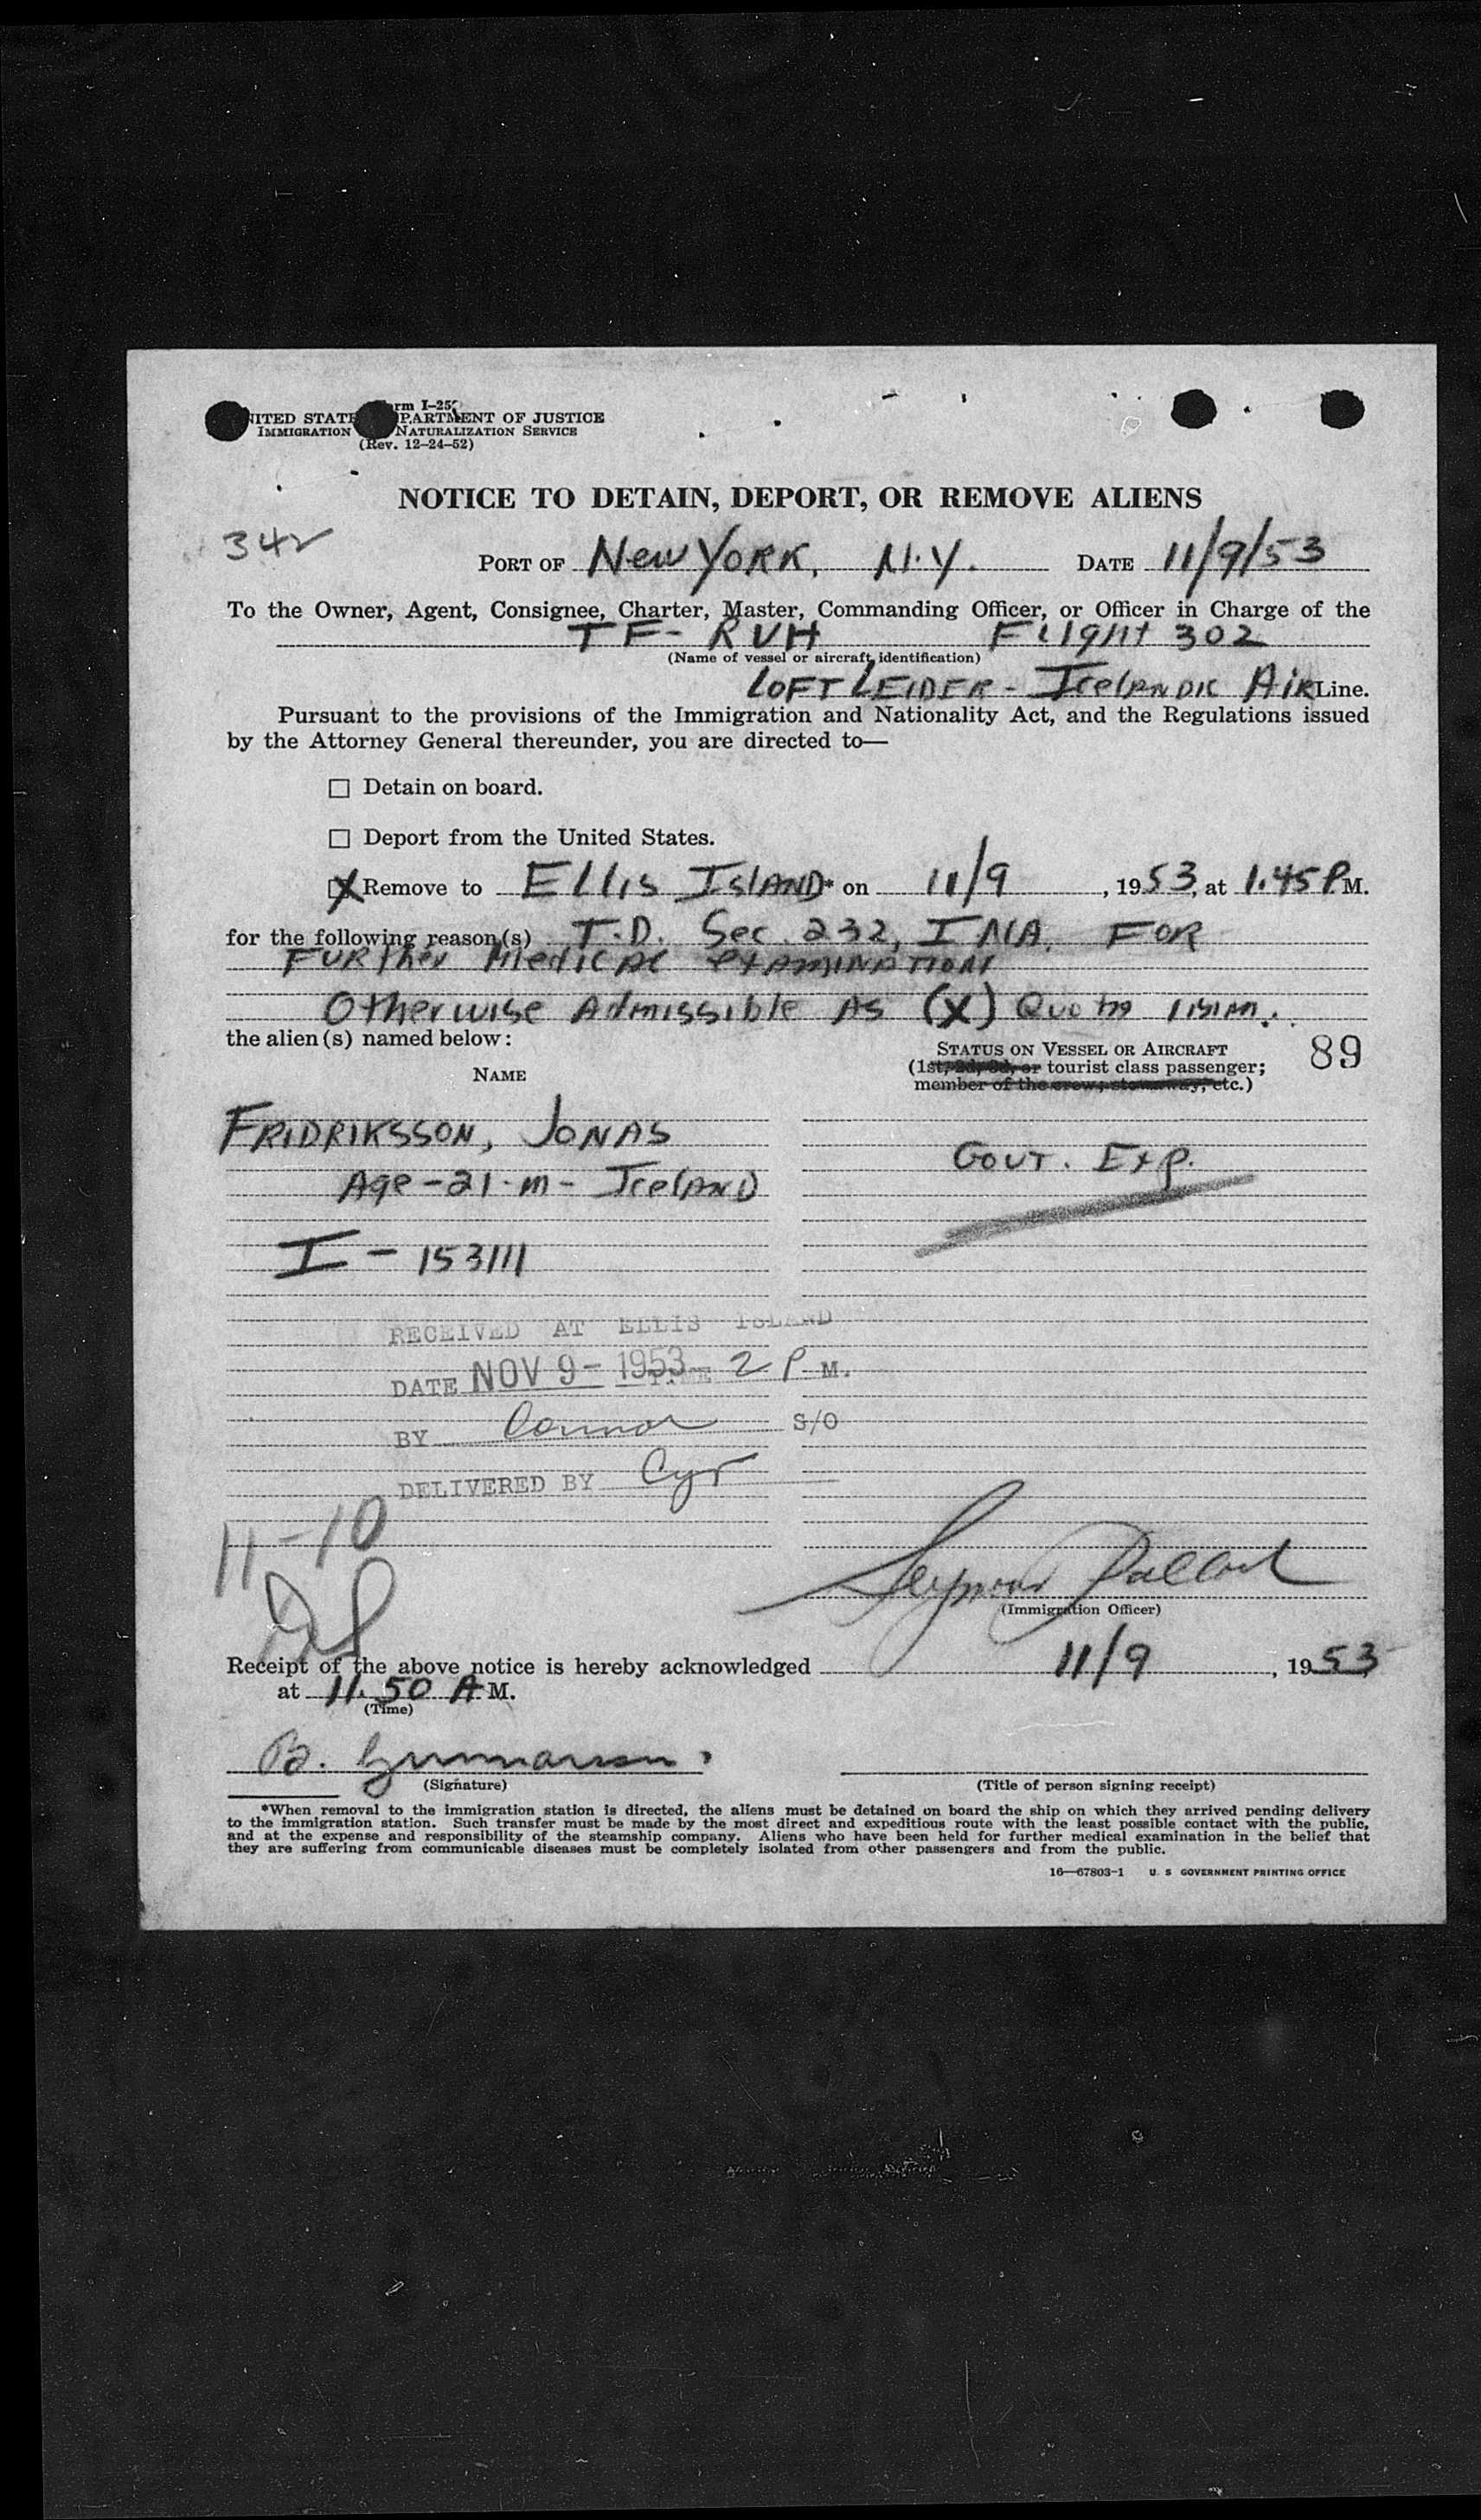 Form I-25
UNITED STATES DEPARTMENT OF JUSTICE
IMMIGRATION NATURALIZATION SERVICE
(Rev. 12-24-52)
NOTICE TO DETAIN, DEPORT, OR REMOVE ALIENS
342
PORT OF New YORK, N.Y. DATE 11/9/53
To the Owner, Agent, Consignee, Charter, Master, Commanding Officer, or Officer in Charge of the
TF-RVH Flight 302
(Name of vessel or aircraft identification)
LOFTLEIDER - Icelandic Air Line.
Pursuant to the provisions of the Immigration and Nationality Act, and the Regulations issued
by the Attorney General thereunder, you are directed to—
☐ Detain on board.
☐ Deport from the United States.
☒ Remove to Ellis Island* on 11/9, 1953, at 1.45 P.M.
for the following reason(s) T.D. Sec. 232, INA. FOR
Further Medical examination
Otherwise Admissible As (X) Quota
the alien(s) named below:
89
STATUS ON VESSEL OR AIRCRAFT
(1st, 2d, 3d, or tourist class passenger;
member of the crew; stowaway, etc.)
NAME
FRIDRIKSSON, JONAS
Age-21-m-Iceland
Govt. Exp.
I-153111
RECEIVED AT ELLIS ISLAND
DATE NOV 9-1953 TIME 2 P M.
BY Connor S/O
DELIVERED BY Cyr
11-10
Seymour
(Immigration Officer)
Receipt of the above notice is hereby acknowledged 11/9, 1953
at 11.50 A M.
(Time)
B. Gunnarsson.
(Signature)
(Title of person signing receipt)
*When removal to the immigration station is directed, the aliens must be detained on board the ship on which they arrived pending delivery
to the immigration station. Such transfer must be made by the most direct and expeditious route with the least possible contact with the public,
and at the expense and responsibility of the steamship company. Aliens who have been held for further medical examination in the belief that
they are suffering from communicable diseases must be completely isolated from other passengers and from the public.
16—67803-1 U. S GOVERNMENT PRINTING OFFICE